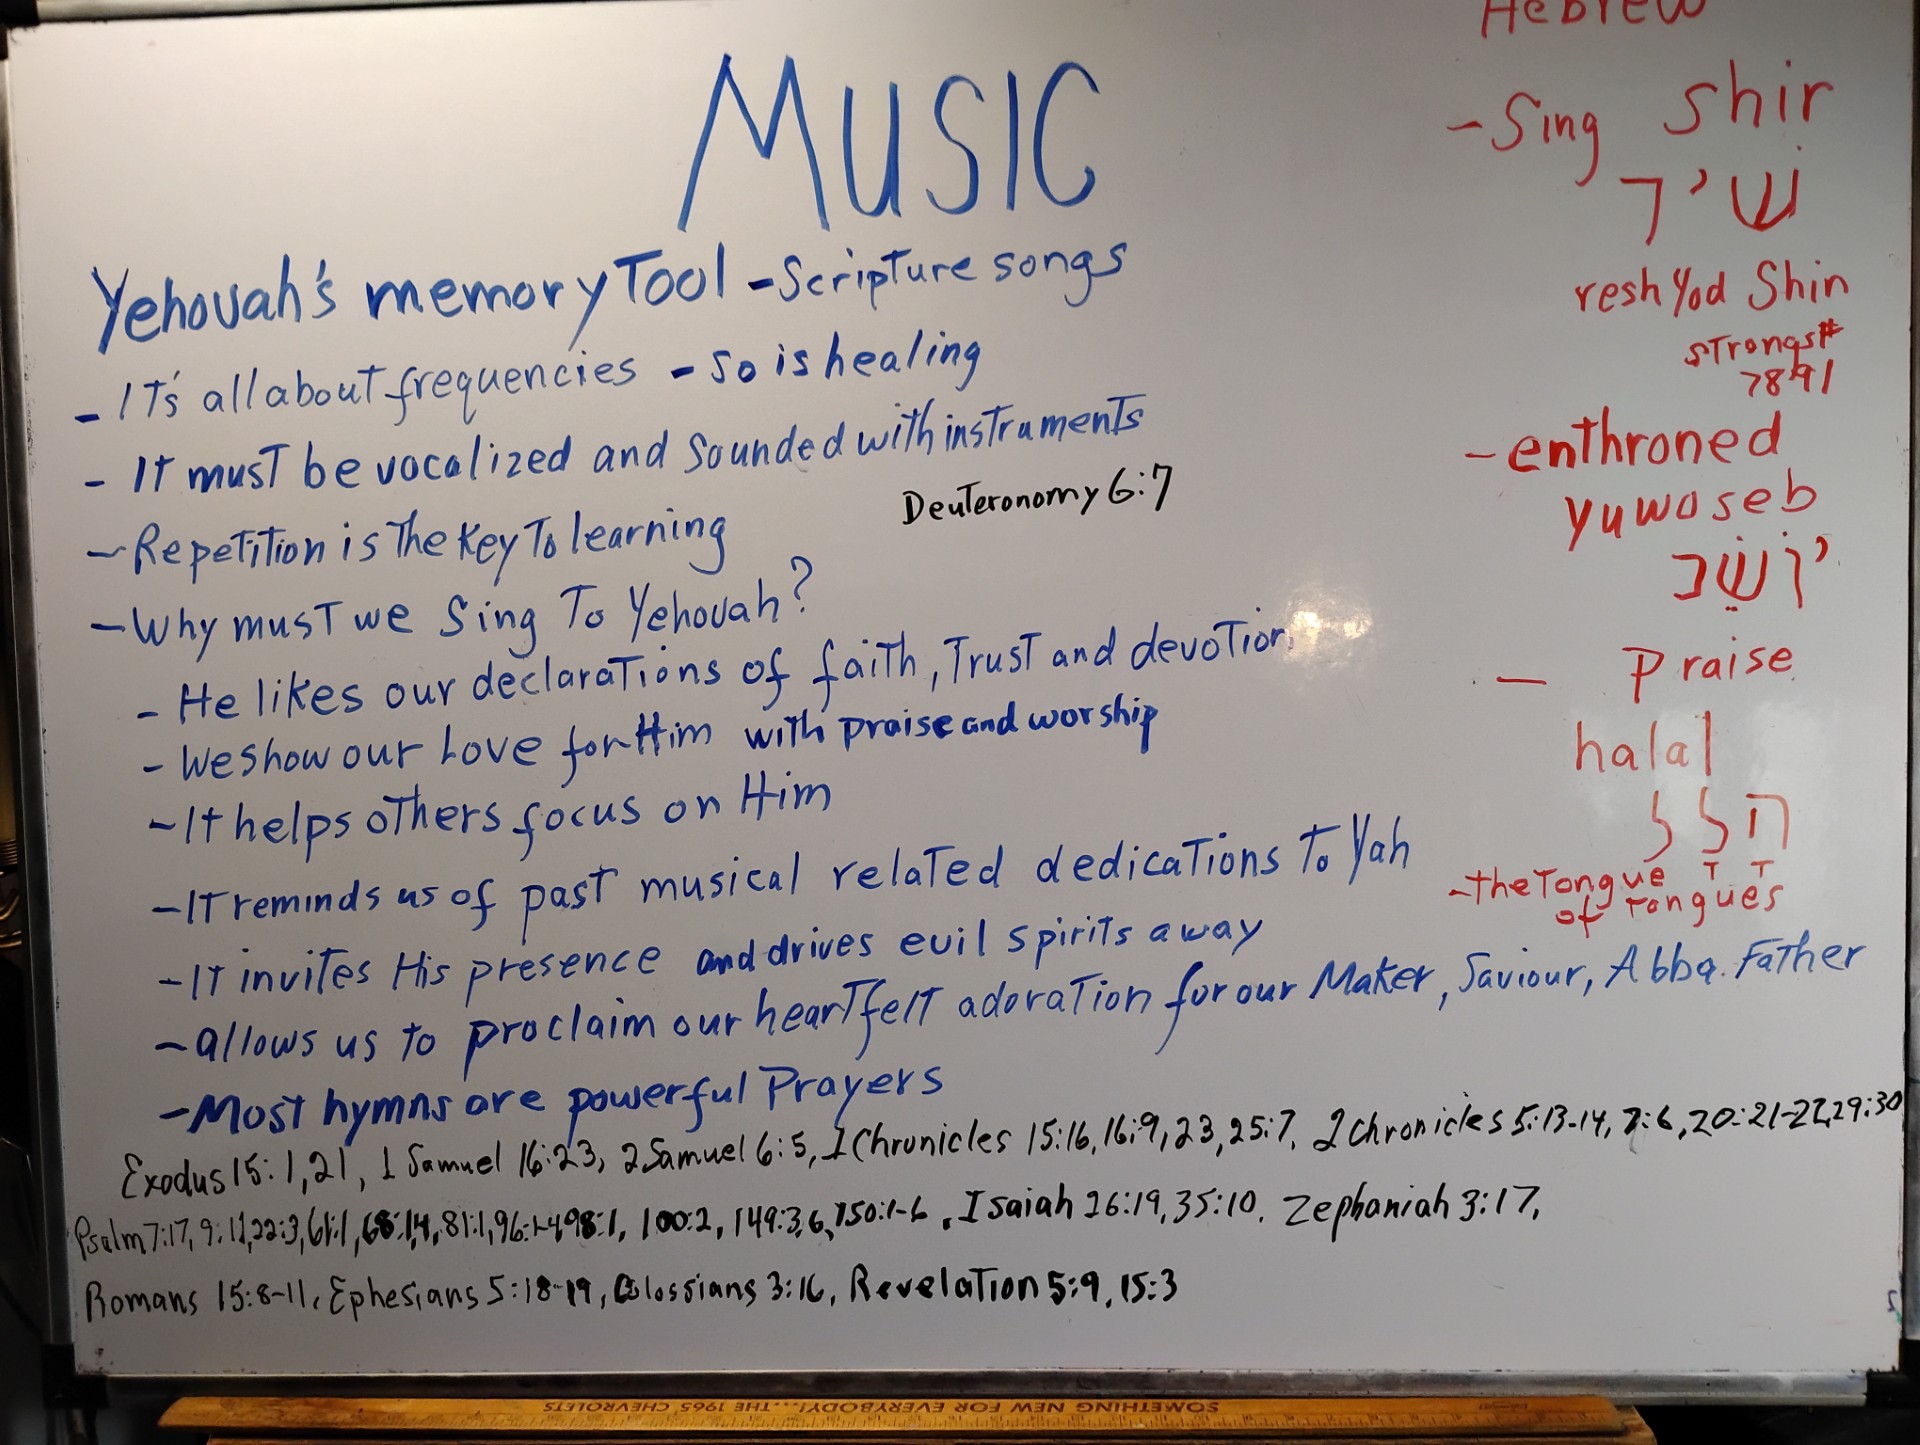 MUSIC
Yehovah's memory Tool - Scripture songs
- It's all about frequencies - so is healing
- It must be vocalized and sounded with instruments
Deuteronomy 6:7
- Repetition is the key to learning
- Why must we sing To Yehovah?
- He likes our declarations of faith, Trust and devotion
- We show our Love for Him with praise and worship
- It helps others focus on Him
- It reminds us of past musical related dedications to Yah
- It invites His presence and drives evil spirits away
- allows us to proclaim our heartfelt adoration for our Maker, Saviour, Abba Father
- Most hymns are powerful Prayers
Exodus 15:1,21, 1 Samuel 16:23, 2 Samuel 6:5, 1 Chronicles 15:16, 16:9,23, 25:7, 2 Chronicles 5:13-14, 7:6, 20:21-22, 29:30
Psalm 7:17, 9:11, 22:3, 61:1, 68:4, 81:1, 96:1-4, 98:1, 100:2, 149:3,6, 150:1-6, Isaiah 26:19, 35:10, Zephaniah 3:17,
Romans 15:8-11, Ephesians 5:18-19, Colossians 3:16, Revelation 5:9, 15:3
Hebrew
- Sing shir
שׁיר
resh Yod Shin
strongs#
7891
- enthroned
yuwoseb
יֹושֵׁב
- Praise
halal
הָלָל
- the Tongue
of Tongues
SOMETHING NEW FOR EVERYBODY!...THE 1965 CHEVROLETS